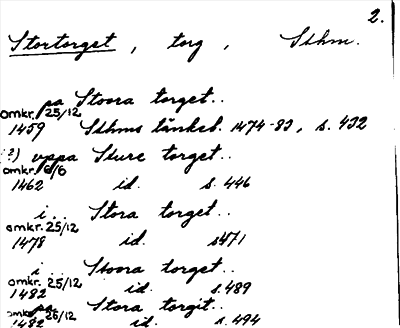 2.
Stortorget, torg, Sthm.
pa Stoora torget..
omkr. 25/12
1459 Sthms tänkeb. 1474-83, s. 432
(?) uppa Sture torget..
omkr. 6/6
1462 id. s. 446
i.. Stora torget..
omkr. 25/12
1478 id. s471
i.. Stoora torget..
omkr. 25/12
1482 id. s. 489
pa Stora torgit..
omkr. 26/12
1482 id. s. 494